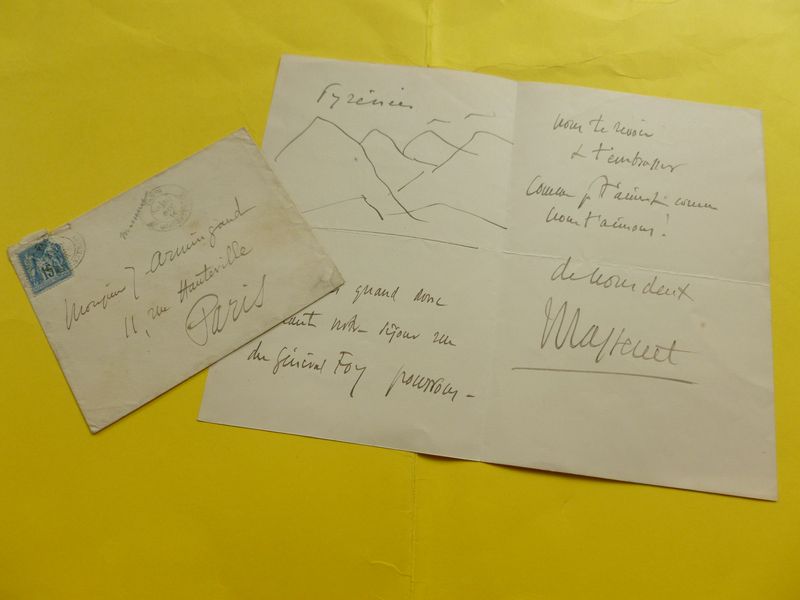 Monsieur J Armingaud
11, rue Hauteville
Paris
15
Pyrénées
quand donc
notre séjour rue
du Général Foy pourrons-
nous te revoir
& t'embrasser
comme je t'aime & comme
nous t'aimons!
de nous deux
Massenet